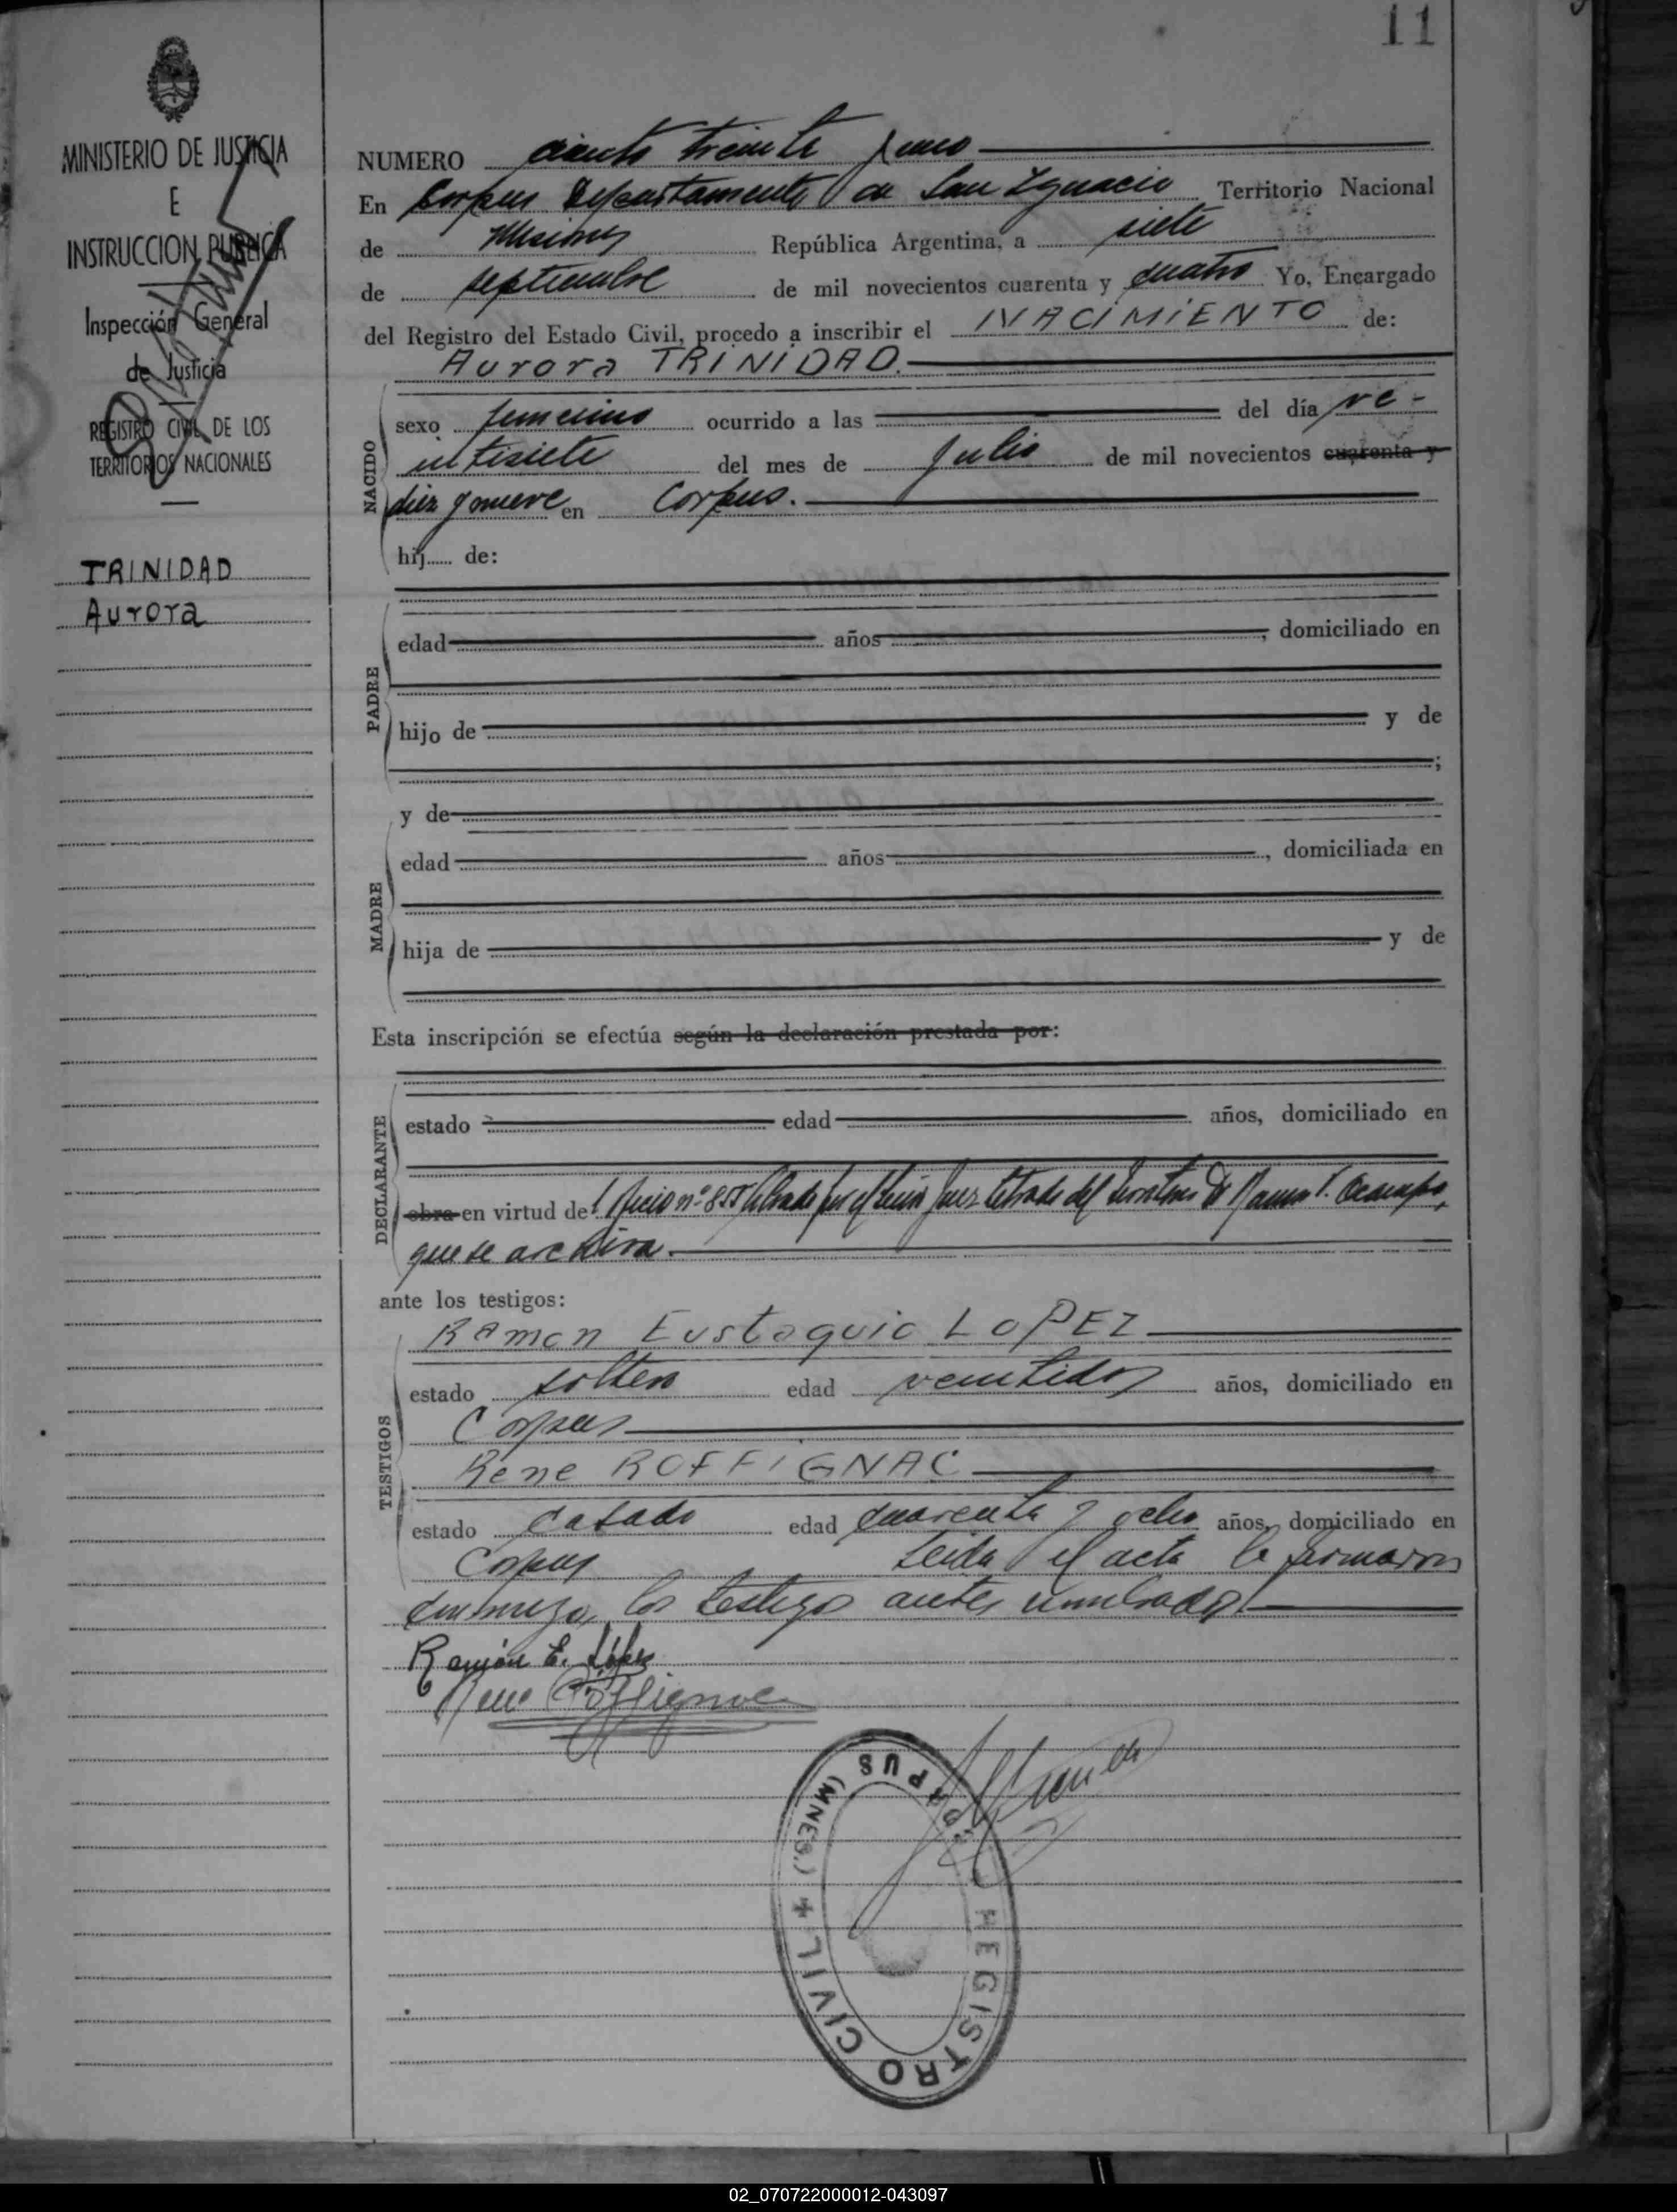 11
MINISTERIO DE JUSTICIA
E
INSTRUCCION PUBLICA
Inspección General
de Justicia
REGISTRO CIVIL DE LOS
TERRITORIOS NACIONALES
TRINIDAD
Aurora
NUMERO ciento treinta y uno
En Corpus Departamento de San Ygnacio Territorio Nacional
de Misiones República Argentina, a siete
de septiembre de mil novecientos cuarenta y cuatro Yo, Encargado
del Registro del Estado Civil, procedo a inscribir el NACIMIENTO de:
Aurora TRINIDAD.
NACIDO
sexo femenino ocurrido a las del día ve-
intisiete del mes de Julio de mil novecientos cuarenta y
diez y nueve en Corpus.
hij...... de:
PADRE
edad años , domiciliado en
hijo de y de
;
MADRE
y de
edad años , domiciliada en
hija de y de
Esta inscripción se efectúa según la declaración prestada por:
DECLARANTE
estado edad años, domiciliado en
obra en virtud del Oficio nº 855 librado por el Señor Juez Letrado del Territorio Dr Ramon Ocampo,
que se archiva.
ante los testigos:
TESTIGOS
Ramon Eustaquio LOPEZ
estado soltero edad veintidos años, domiciliado en
Corpus
Rene ROFFIGNAC
estado casado edad cuarenta y ocho años, domiciliado en
Corpus Leida el acta la firmaron
conmigo, los testigos antes nombrados.
Ramón E. López
Rene Roffignac
REGISTRO CIVIL + CORPUS (MNES.)
02_070722000012-043097